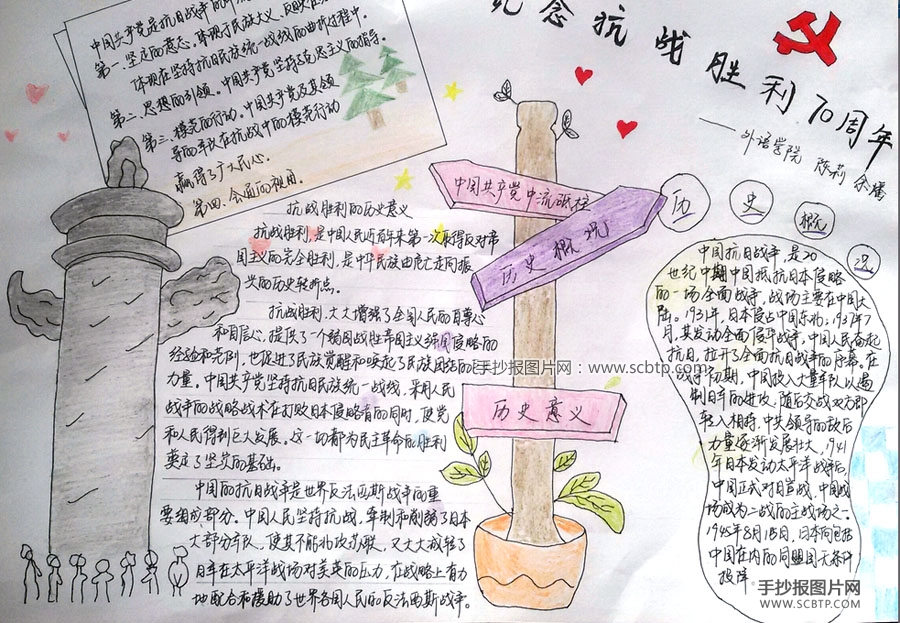 纪念抗战胜利70周年
——外语学院 陈莉 余
中国共产党是抗日战争的中
第一、坚定的意志。体现了民族大义，反映在
体现在坚持抗日民族统一战线的曲折过程中。
第二、思想的引领。中国共产党坚持马克思主义的指导。
第三、模范的行动。中国共产党及其领
导的军队在抗战中的模范行动
赢得了广大民心。
第四、全面的视角。
抗战胜利的历史意义
抗战胜利，是中国人民近百年来第一次取得反对帝
国主义的完全胜利，是中华民族由危亡走向振
兴的历史转折点。
抗战胜利，大大增强了全国人民的自尊心
和自信心，提供了一个弱国战胜帝国主义强国侵略的
经验和范例，也促进了民族觉醒和唤起了民族团结的
力量。中国共产党坚持抗日民族统一战线，采用人民
战争的战略战术在打败日本侵略者的同时，使党
和人民得到巨大发展。这一切都为民主革命的胜利
奠定了坚实的基础。
中国的抗日战争是世界反法西斯战争的重
要组成部分。中国人民坚持抗战，牵制和削弱了日本
大部分军队，使其不能北攻苏联，又大大减轻了
日军在太平洋战场对美英的压力，在战略上有力
地配合和援助了世界各国人民的反法西斯战争。
中国共产党中流砥柱
历史概况
历史意义
历史概况
中国抗日战争是20
世纪中期中国抵抗日本侵略
的一场全面战争，战场主要在中国大
陆。1931年，日本侵占中国东北；1937年7
月，其发动全面侵华战争，中国人民奋起
抗日，拉开了全面抗日战争的序幕。在
战争初期，中国投入大量军队以遏
制日军的进攻，随后交战双方即
转入相持，中共领导的敌后
力量逐渐发展壮大，1941
年日本发动太平洋战争后，
中国正式对日宣战，中国战
场成为二战的主战场之一。
1945年8月15日，日本向包括
中国在内的同盟国无条件
投降。
手抄报图片网：www.scbtp.com
手抄报图片网
WWW.SCBTP.COM